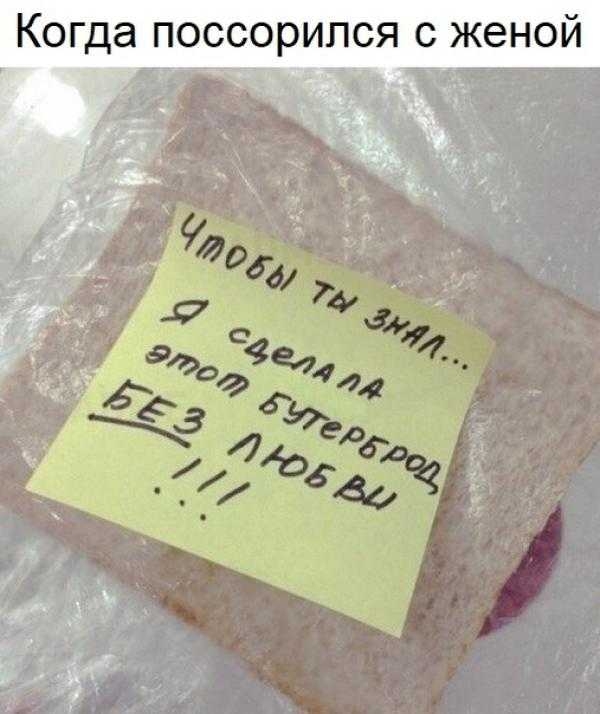 Когда поссорился с женой
Чтобы ты знал...
Я сделала
этот бутерброд
БЕЗ любви
!!!